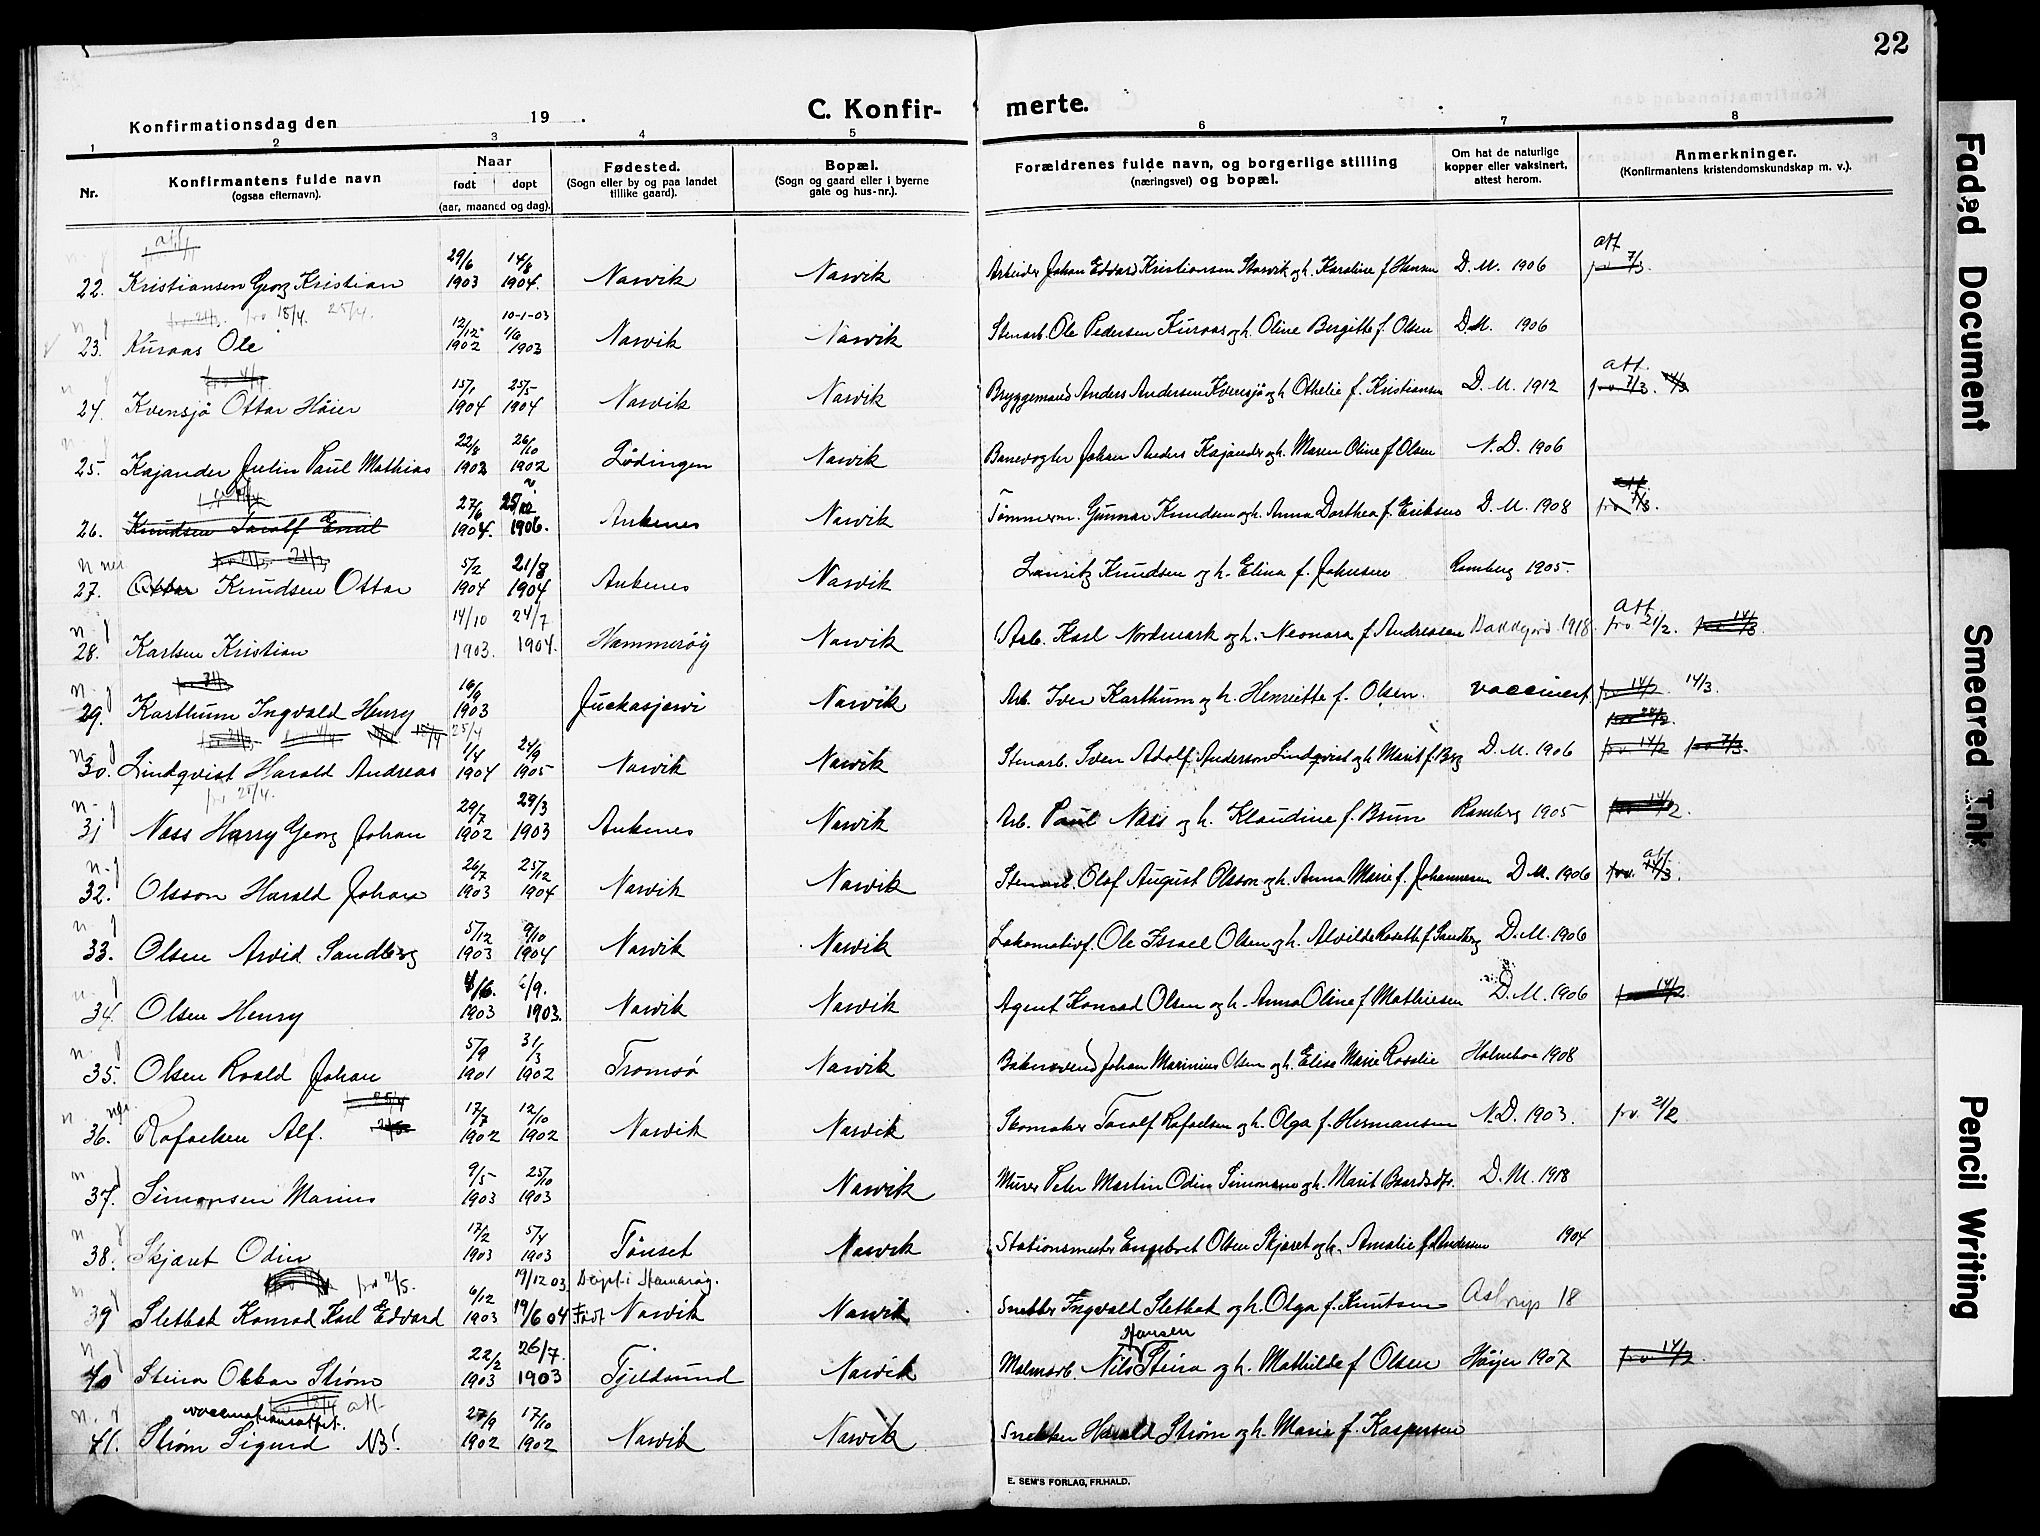 22
C. Konfir- merte.
Konfirmationsdag den 19 .
1 2 3 4 5 6 7 8
Nr. Konfirmantens fulde navn (ogsaa efternavn). Naar født døpt (aar, maaned og dag). Fødested. (Sogn eller by og paa landet tillike gaard). Bopæl. (Sogn og gaard eller i byerne gate og hus-nr.). Forældrenes fulde navn, og borgerlige stilling (næringsvei) og bopæl. Om hat de naturlige kopper eller vaksinert, attest herom. Anmerkninger. (Konfirmantens kristendomskundskap m. v.).
att
22. Kristiansen Georg Kristian 29/6 1903 14/8 1904. Narvik Narvik Arbeider Johan Edvard Kristiansen Storvik og h. Karoline f Hansen D. M. 1906 att frv 7/3.
frv 21/3. frv 18/4. 25/4.
23. Kuraas Ole 12/12 1902 10-1-03 1/6 1903 Narvik Narvik Stenarb. Ole Pedersen Kuraas og h. Oline Bergitte f. Olsen D.M. 1906
frv 4/4
24. Kvensjö Ottar Höier 15/1 1904 25/5 1904 Narvik Narvik Bryggemand Anders Andersen Kvensjö og h Othelie f. Kristiansen D. M. 1912 att. frv 7/3. 14/3
25. Kajander Julin Paul Mathias 22/8 1902 26/10 1902 Lödingen Narvik Banevogter Johan Anders Kajander og h. Maren Oline f Olsen N. D. 1906
26. Knudsen Taralf Emil 27/6 1904. 25/12 1906. Ankenes Narvik Tömmerm. Gunnar Knudsen og h. Anna Dorthea f. Eriksen D. M. 1908 att frv 7/3.
frv 21/3 21/3
27. Ottar Knudsen Ottar 5/2 1904 21/8 1904 Ankenes Narvik Lauritz Knudsen og h. Elina f. Johnsen Ramberg 1905
28. Karlsen Kristian 14/10 1903. 24/7 1904. Hammeröy Narvik Arb. Karl Nordmark og h. Neonara f Andreasen 1918 att frv 21/2. frv 14/3
29. Karthum Ingvald Henry 16/9 1903 Juckasjervi Narvik Arb. Iver Karthum og h. Henriette f. Olsen. vaccinert frv 14/2. 14/3.
frv 21/3. frv 4/4 18/4 25/4
30. Lindqvist Harald Andreas 1/4 1904 24/9 1905 Narvik Narvik Stenarb. Sven Adolf Anderson Lindqvist og h Marit f. Berg D. M. 1906 frv 14/2 frv 7/3.
frv 25/4.
31 Næss Harry Georg Johan 29/7 1902 29/3 1903 Ankenes Narvik Arb. Paul Næss og h. Klaudine f. Brun Ramberg 1905 frv 14/2.
32. Olsson Harald Johan 26/7 1903 25/12 1904 Narvik Narvik Stenarb. Olof August Olsson og h. Anna Marie f. Johannesen D M. 1906 att frv. 14/3.
33. Olsen Arvid Sandberg 5/12 1903 9/10 1904 Narvik Narvik Lokomotivf. Ole Israel Olsen og h. Alvilde Rosette f Sandberg D. M. 1906
34. Olsen Henry 4/6. 1903 6/9. 1903. Narvik Narvik Agent Konrad Olsen og h. Anna Oline f Mathiesen D. M. 1906 frv 14/2
35. Olsen Roald Johan 5/9 1901 31/3 1902 Tromsö Narvik Johan Marinius Olsen og h. Elise Marie Rosalie Holmboe 1908
frv 25/4
36. Rafaelsen Alf. 17/7 1902 12/10 1902 Narvik Narvik Skomaker Taralf Rafaelsen og h. Olga f. Hermansen N. D. 1903. frv. 21/2
37. Simonsen Marius 9/5 1903 25/10 1903 Narvik Murer Peter Martin Odin Simonsen og h. Marit Baardsdtr. D. M. 1918
38. Skjæret Odin 17/2 1903 5/4 1903 Tönset Narvik Stationsmester Engebret Olsen Skjæret og h. Amalie f. Andersen 1904
frv 2/5.
39 Sletbak Konrad Karl Edvard 6/12 1903 19/12 03 19/6 04 Døpt i Hamarøy. Født Narvik Narvik Snekker Ingvald Sletbak og h. Olga f. Knutsen Astrup 18
40 Steira Ottar Strøm 22/2 1903 26/7. 1903 Tjeldsund Narvik Malmarb. Nils Hansen Steira og h. Mathilde f Olsen Høyer 1907 frv 14/2.
vaccinationsattst. frv 12/4 att.
41. Strøm Sigurd NB! 27/9 1902 17/10 1902 Narvik Narvik Snekker Harald Strøm og h. Marie f. Kaspersen
E. SEM'S FORLAG, FR.HALD.
Faded Document
Smeared Ink
Pencil Writing